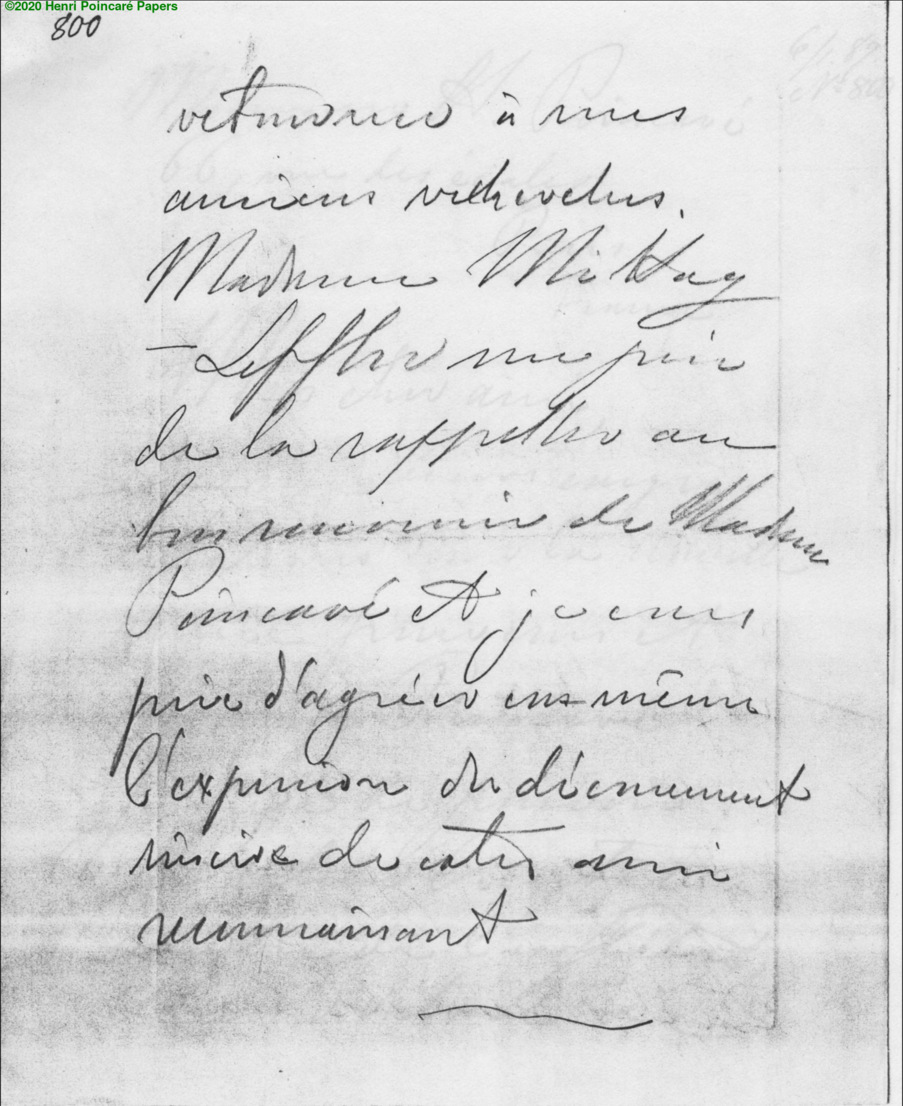 ©2020 Henri Poincaré Papers
800
retourne à mes
anciens
Madame Mittag
-Leffler me prie
de la rappeller au
bon souvenir de Madame
Poincaré et je vous
prie d'agréer vous-même
l'expression du dévouement
sincère de votre ami
reconnaissant